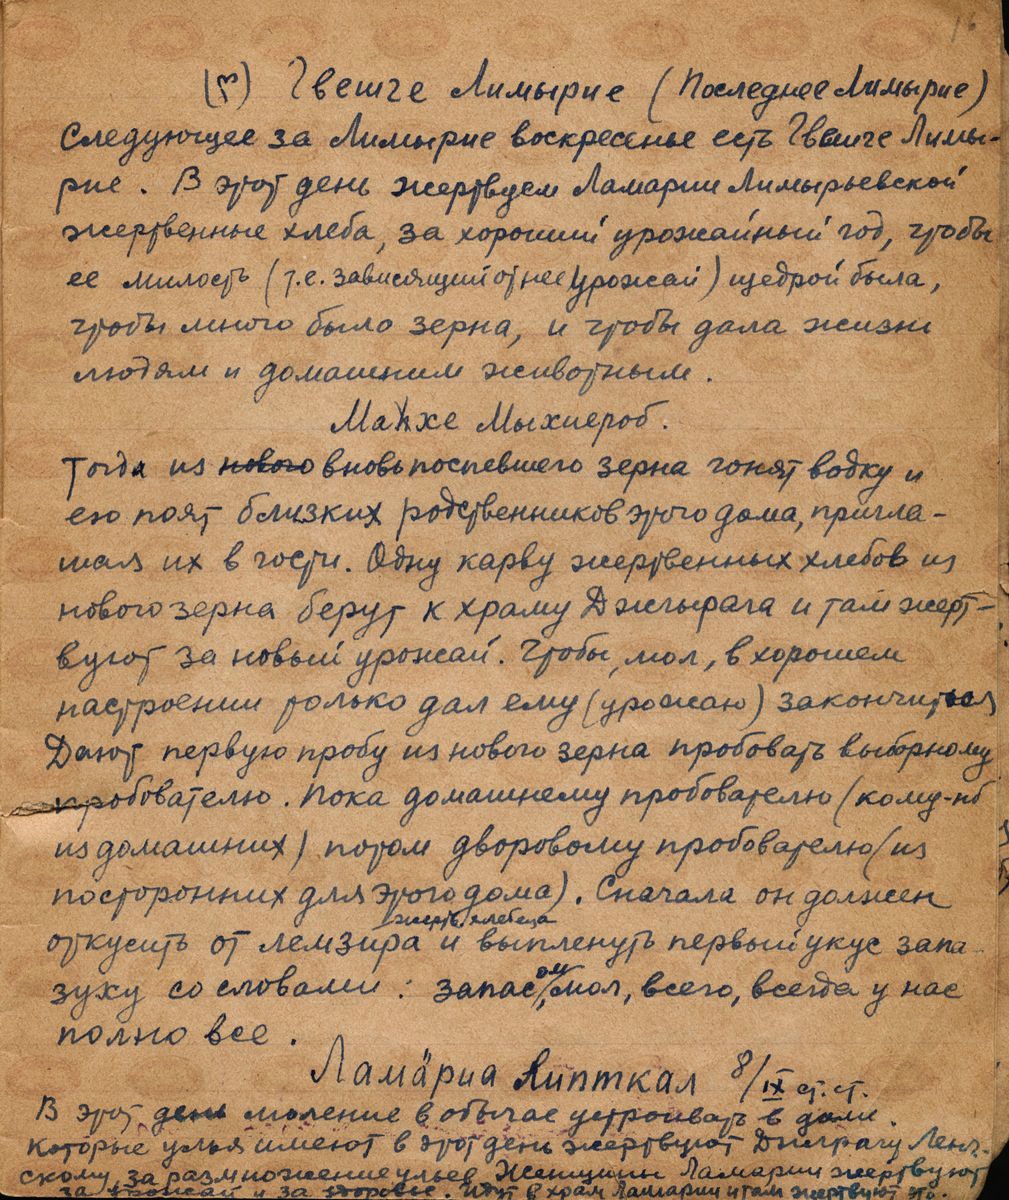 16
(3) Гвешге Лимырие (Последнее Лимырие)
Следующее за Лимырие воскресенье есть Гвешге Лимы-
рие. В этот день жертвуем Ламарии Лимырьевской
жертвенные хлеба, за хороший урожайный год, чтобы
ее милость (т.е. зависящий от нее урожай) щедрой была,
чтобы много было зерна, и чтобы дала жизни
людям и домашним животным.
Махе Мыхиероб.
Тогда из нового вновь поспевшего зерна гонят водку и
ею поят близких родственников этого дома, пригла-
шая их в гости. Одну карву жертвенных хлебов из
нового зерна берут к храму Джгырага и там жерт-
вуют за новый урожай. Чтобы, мол, в хорошем
настроении только дал ему (урожаю) закончиться
Дают первую пробу из нового зерна пробовать выборному
пробователю. Пока домашнему пробователю (кому-нб
из домашних) потом дворовому пробователю (из
посторонних для этого дома). Сначала он должен
жертв. хлебца
откусить от лемзира и выпленуть первый укус запа-
зуху со словами: запасом, мол, всего, всегда у нас
полно все.
Ламäриа Липткал 8/IX ст. ст.
В этот день моление в обычае устроивать в доме.
Которые улья имеют в этот день жертвуют Джграгу
скому, за размножение ульев. Женщины Ламарии жертвуют
за урожай и за здоровье. Идут в храм Ламарии и там жертвуют